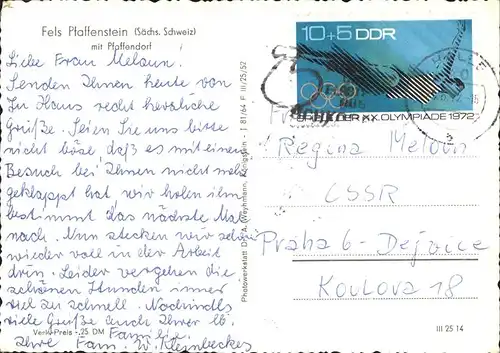 Fels Pfaffenstein (Sächs. Schweiz)
mit Pfaffendorf
Liebe Frau Meloun.
Senden Ihnen heute von
zu Haus recht herzliche
Grüße. Seien Sie uns bitte
nicht böse daß es mit einem
Besuch bei Ihnen nicht mehr
geklappt hat wir holen ihn
bestimmt das nächste Mal
nach. Nun stecken wir schon
wieder voll in der Arbeit
drin. Leider vergehen die
schönen Stunden immer
viel zu schnell. Nochmals
viele Grüße auch Ihrer lb.
Familie.
Ihre Fam. W. Kleinbeckes
Verk.-Preis -,25 DM
Photowerkstatt (Weyhmann, Königstein - J 81/64 F III/25/52
10+5 DDR
SPIELE DER XX. OLYMPIADE 1972
Regina Meloun
CSSR
Praha 6 - Dejvice
Koulova 18
III 25 14